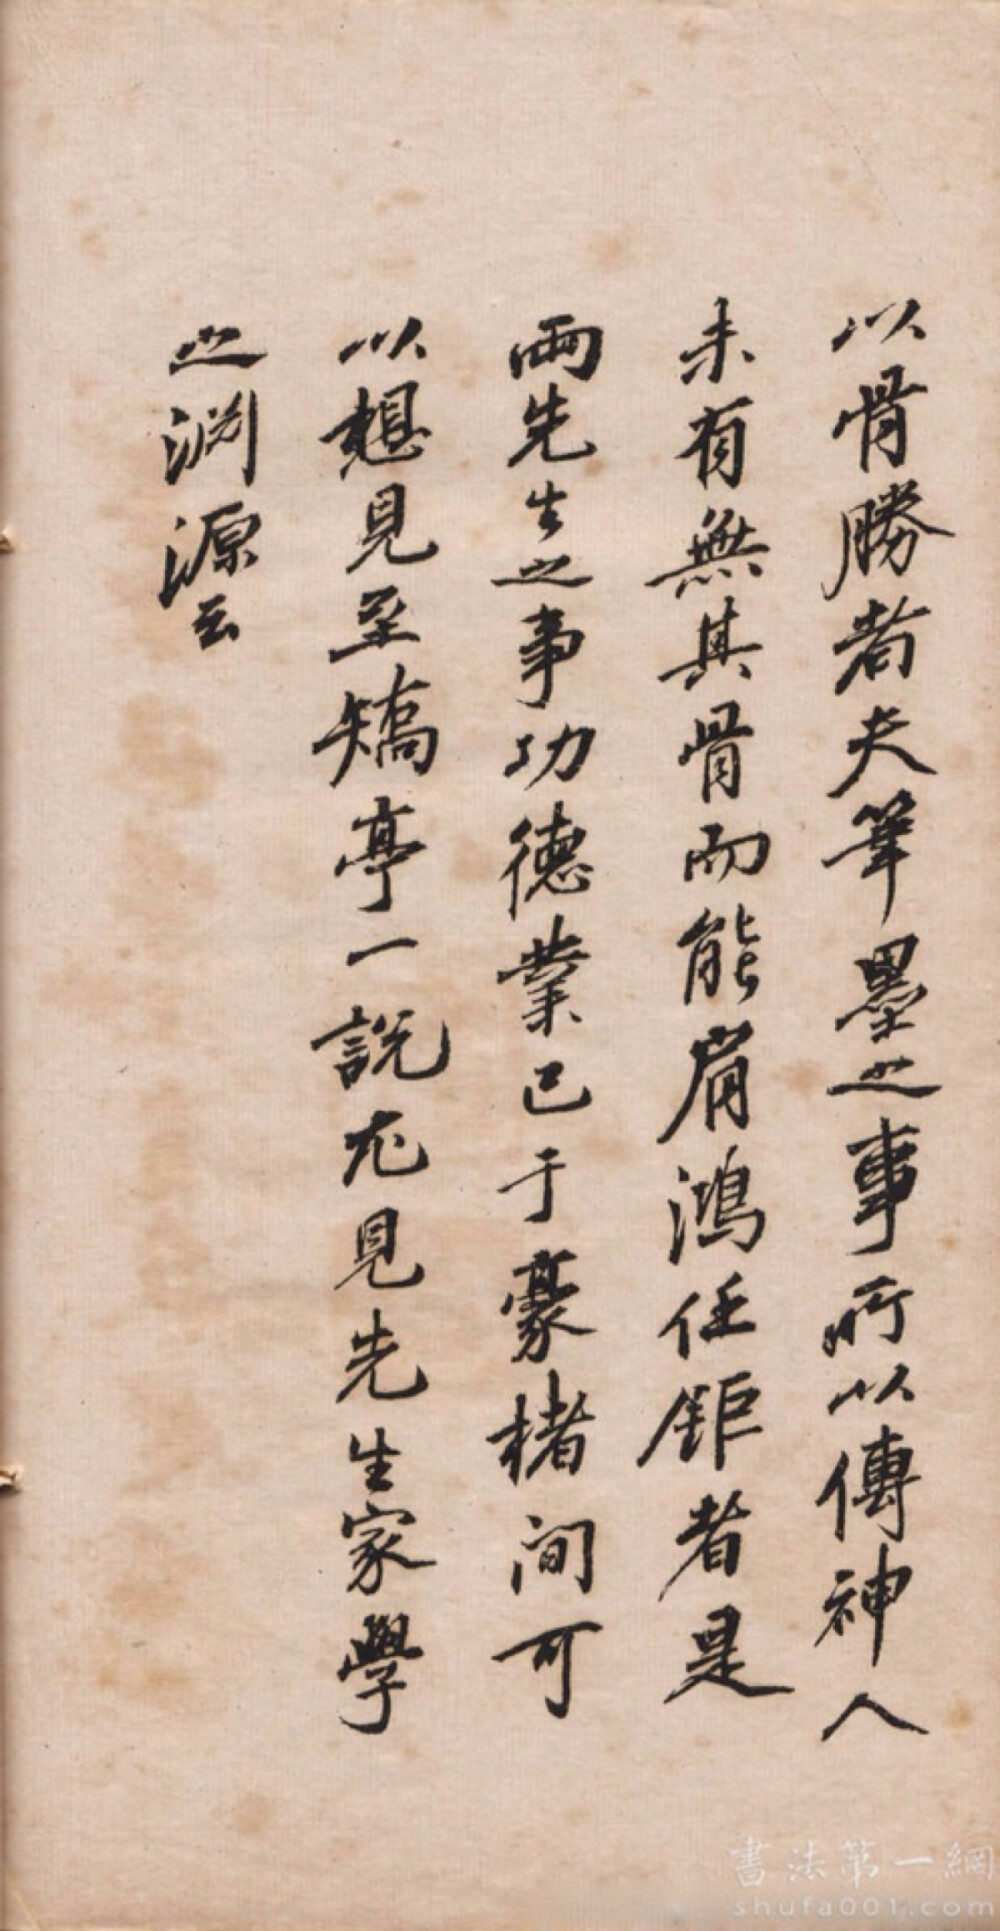 以骨勝者夫筆墨之事所以傳神人
未有無其骨而能肩鴻任鉅者是
兩先生之事功德業已于豪楮间可
以想見至矯亭一說尤見先生家學
之淵源云
書法第一網
shufa001.com